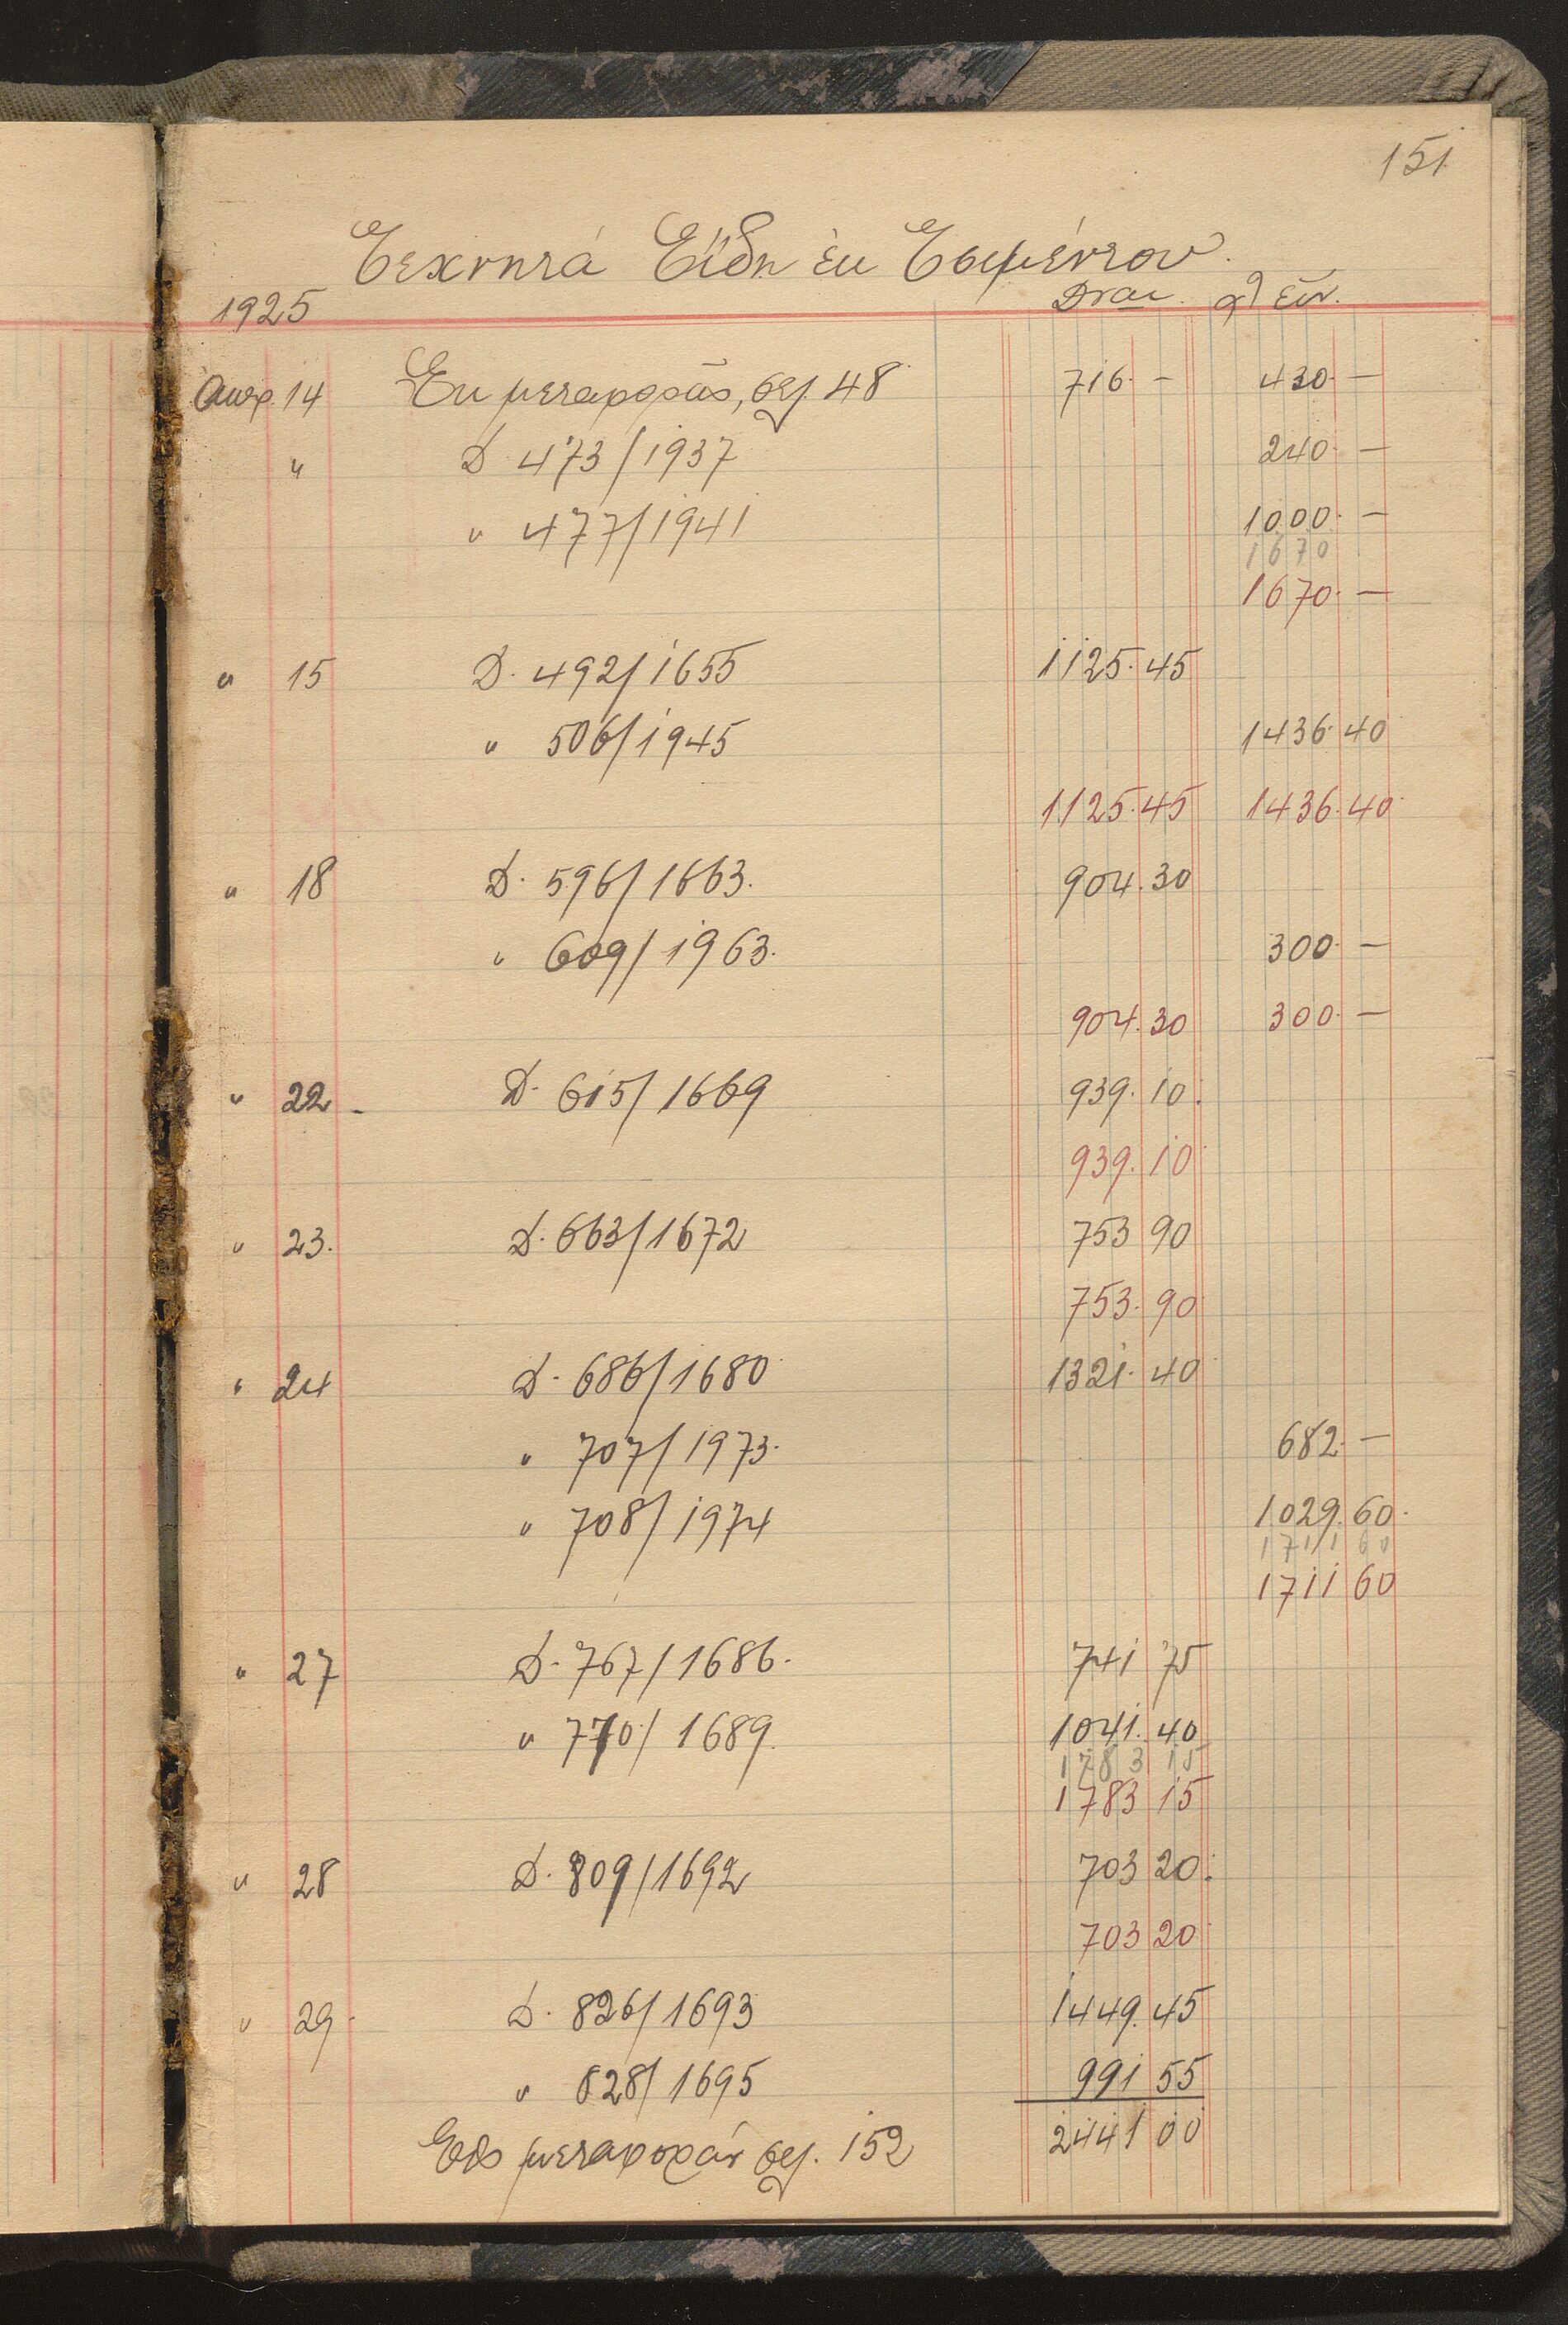 151
Τεχνητά Είδη ἐκ Τσιμέντου.
1925
14 Ἐκ μεταφορᾶς, σελ. 48 716.— 430.—
" Δ 473/1937 240.—
" 477/1941 1000.—
1670
1670.—
" 15 Δ. 492/1655 1125.45
" 506/1945 1436.40
1125.45 1436.40
" 18 Δ. 596/1663. 904.30
" 609/1963. 300.—
904.30 300.—
" 22 - Δ. 615/1669 939.10
939.10
" 23. Δ. 663/1672 753 90
753.90
" 24 Δ. 686/1680 1321.40
" 707/1973. 682.—
" 708/1974 1029.60
1711 60
1711 60
" 27 Δ. 767/1686. 741 75
" 770/1689. 1041.40
1783 15
1783 15
" 28 Δ. 809/1692 703 20
703 20
" 29 Δ. 826/1693 1449.45
" 828/1695 991 55
Εἰς μεταφοράν σελ. 152 2441 00